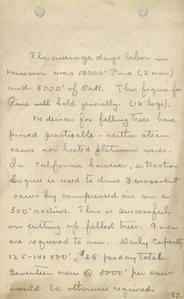 The average days labor in
Missouri was 10000' Pine (2 men)
and 5000' of Oak. This figure for
Pine will hold generally. (16' logs).
No devices for felling trees have
proved practicable - neither steam
saws nor heated platinum wires.
In California however, a traction
Engine is used to drive 3 crosscut
saws by compressed air on a
300' radius. This is successful
on cutting up felled trees. 9 men
are required to run. Daily Capacity
125-140 000', $25 per day total.
Seventeen men @ 8000' per saw
would be otherwise required.